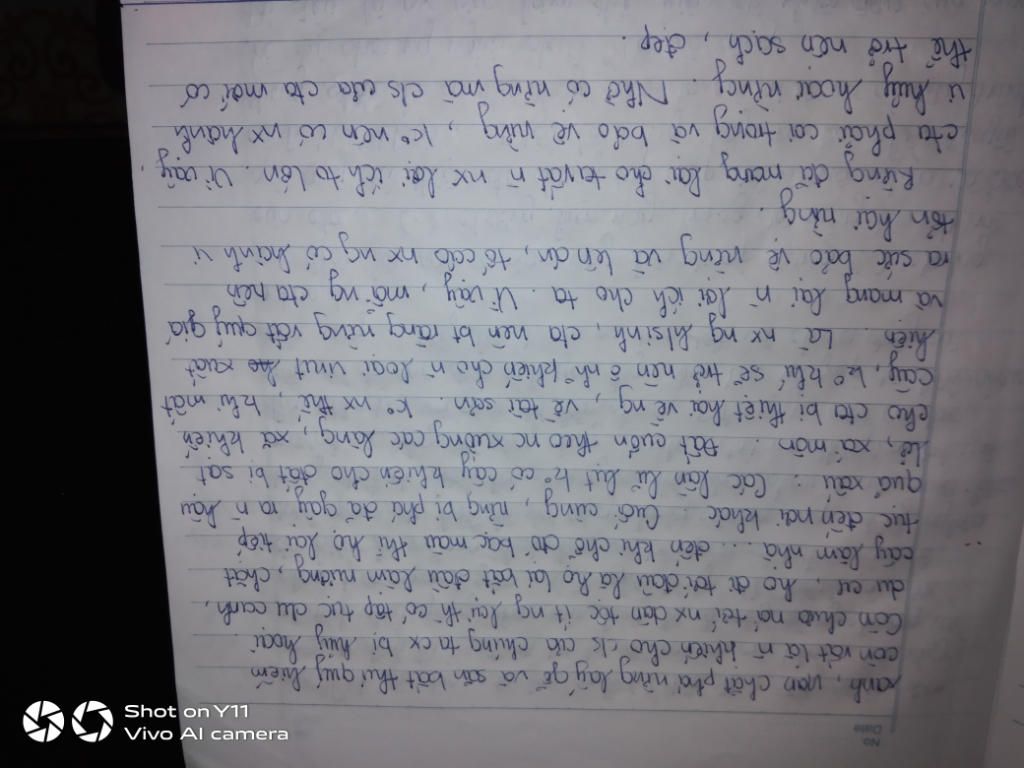 No
Date
xanh, nạn chặt phá rừng lấy gỗ và săn bắt thú quý hiếm
còn rất là n̄ khiến cho c/s của chúng ta cx bị hủy hoại.
Còn chưa nói tới nx dân tộc ít ng lại th có tập tục du canh,
du cư, họ đi tới đâu là họ lại bắt đầu làm nương, chặt
cây làm nhà ... đến khi chỗ đó bạc màu thì họ lại tiếp
tục đến nơi khác. Cuối cùng, rừng bị phá đã gây ra n̄ hậu
quả xấu. Các lần lũ lụt k° có cây khiến cho đất bị sạt
lở, xói mòn. Đất cuốn theo nc xuống các làng, xã khiến
cho cta bị thiệt hại về ng, về tài sản. K° nx thế, khi mất
cây, k° khí sẽ trở nên ô nh° khiến cho n̄ loại virut xuất
hiện. Là nx ng h/sinh, cta nên bt rằng rừng rất quý giá
và mang lại n̄ lợi ích cho ta. Vì vậy, mỗi ng cta nên
ra sức bảo vệ rừng và lên án, tố cáo nx ng có hành vi
tổn hại rừng.
Rừng đã mang lại cho ta rất n̄ nx lợi ích to lớn. Vì vậy,
cta phải coi trọng và bảo vệ rừng, k° nên có nx hành
vi hủy hoại rừng. Nhờ có rừng mà c/s của cta mới có
thể trở nên sạch, đẹp.
Shot on Y11
Vivo AI camera